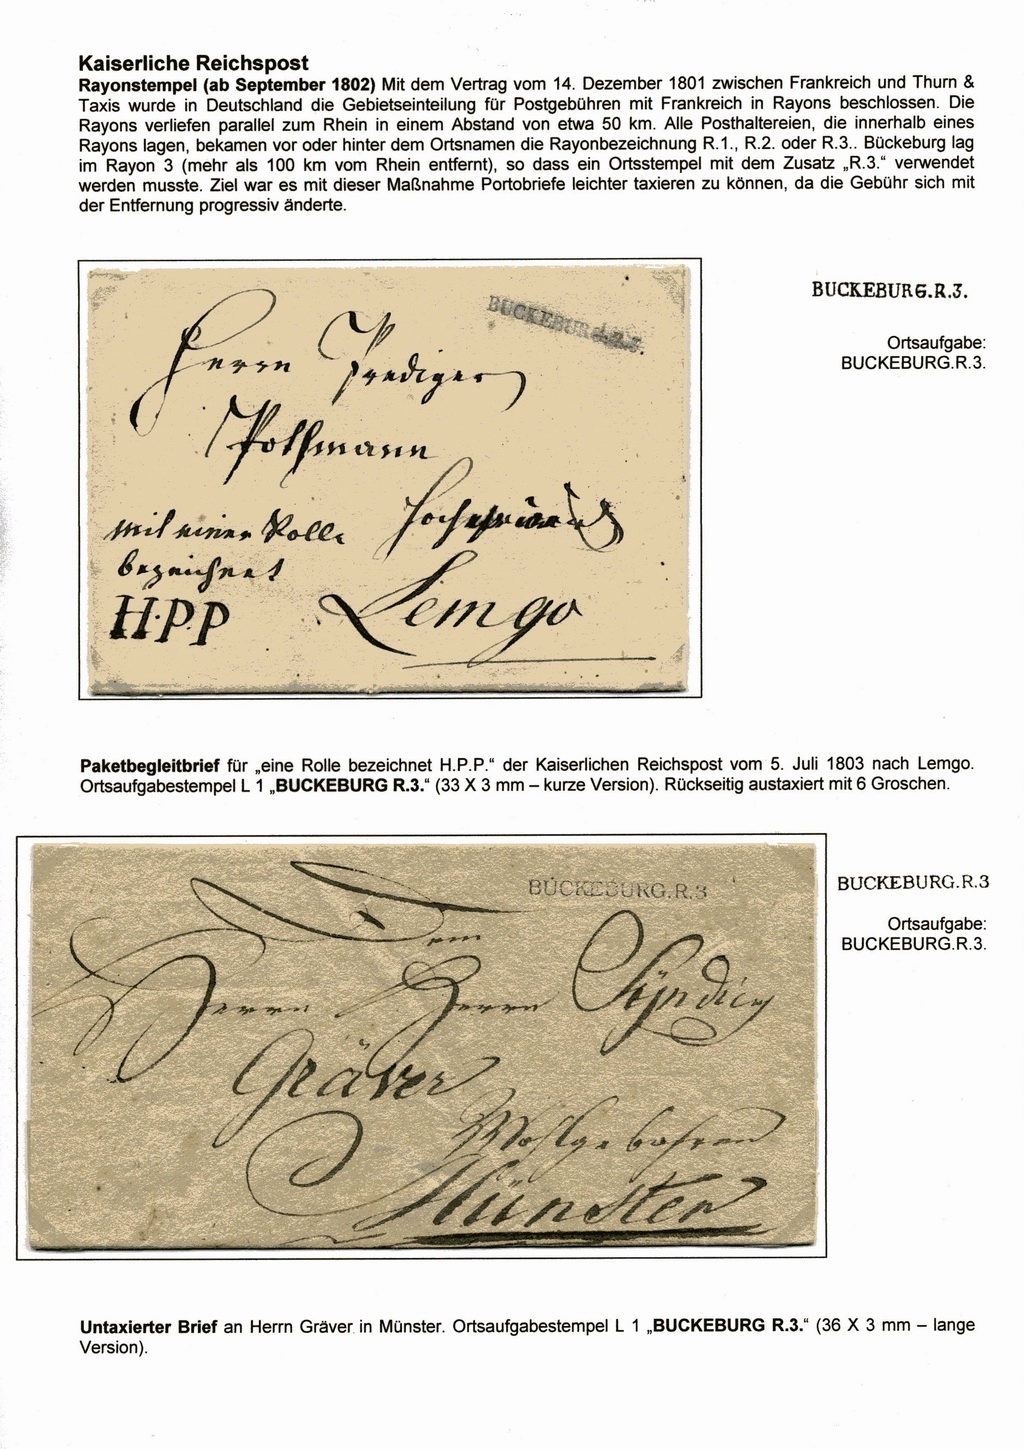 Kaiserliche Reichspost
Rayonstempel (ab September 1802) Mit dem Vertrag vom 14. Dezember 1801 zwischen Frankreich und Thurn &
Taxis wurde in Deutschland die Gebietseinteilung für Postgebühren mit Frankreich in Rayons beschlossen. Die
Rayons verliefen parallel zum Rhein in einem Abstand von etwa 50 km. Alle Posthaltereien, die innerhalb eines
Rayons lagen, bekamen vor oder hinter dem Ortsnamen die Rayonbezeichnung R.1., R.2. oder R.3.. Bückeburg lag
im Rayon 3 (mehr als 100 km vom Rhein entfernt), so dass ein Ortsstempel mit dem Zusatz „R.3.“ verwendet
werden musste. Ziel war es mit dieser Maßnahme Portobriefe leichter taxieren zu können, da die Gebühr sich mit
der Entfernung progressiv änderte.
BUCKEBURG.R.3.
Herrn Prediger
Pothmann
mit einer Rolle
bezeichnet
H.P.P
Lemgo
BUCKEBURG.R.3.
Ortsaufgabe:
BUCKEBURG.R.3.
Paketbegleitbrief für „eine Rolle bezeichnet H.P.P.“ der Kaiserlichen Reichspost vom 5. Juli 1803 nach Lemgo.
Ortsaufgabestempel L 1 „BUCKEBURG R.3.“ (33 X 3 mm – kurze Version). Rückseitig austaxiert mit 6 Groschen.
BUCKEBURG.R.3
Dem
Herrn Herrn Syndicy
Gräver
Wohlgebohren
Münster
BUCKEBURG.R.3
Ortsaufgabe:
BUCKEBURG.R.3.
Untaxierter Brief an Herrn Gräver in Münster. Ortsaufgabestempel L 1 „BUCKEBURG R.3.“ (36 X 3 mm – lange
Version).